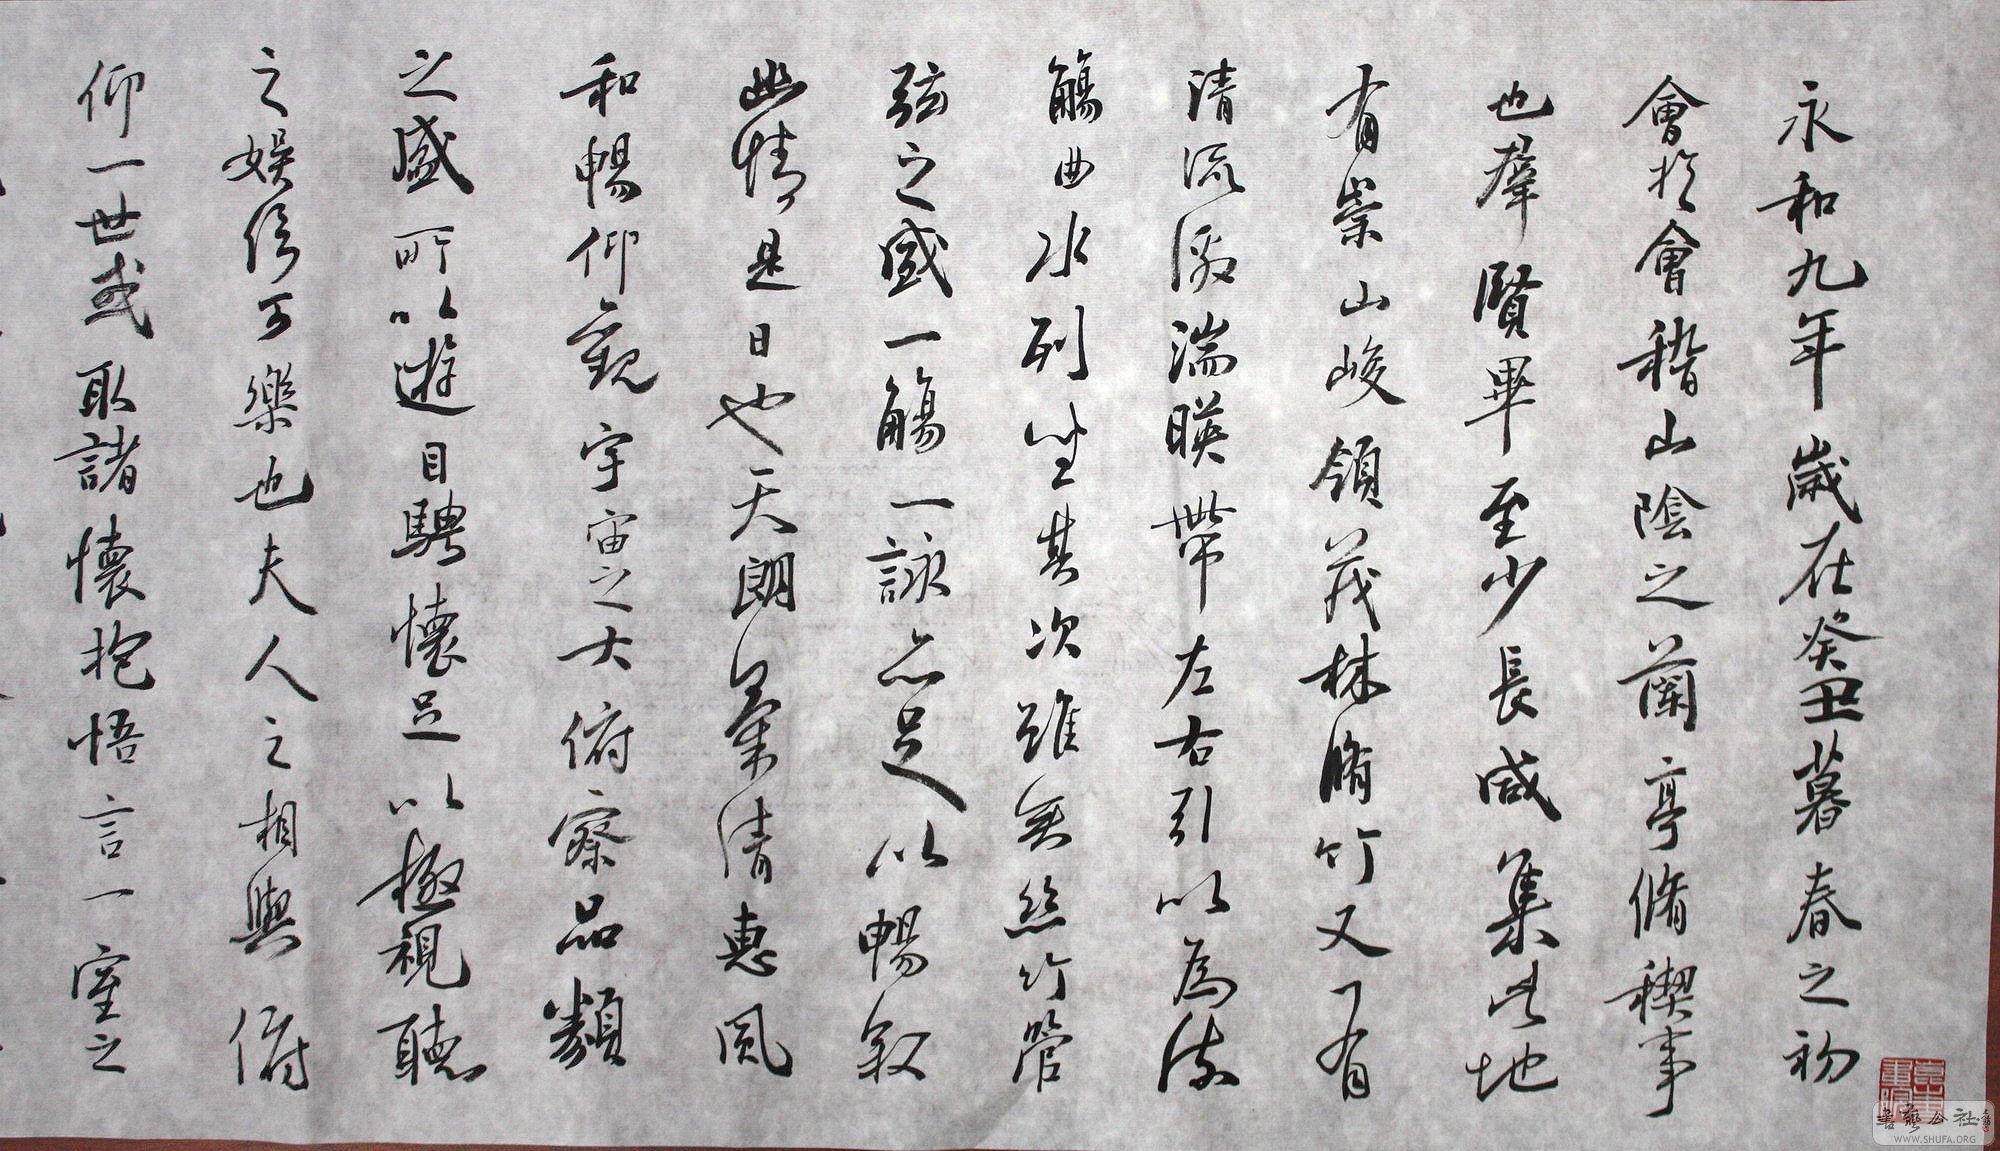 永和九年歲在癸丑暮春之初
會於會稽山陰之蘭亭脩稧事
也羣賢畢至少長咸集此地
有崇山峻領茂林脩竹又有
清流激湍暎帶左右引以為流
觴曲水列坐其次雖無絲竹管
弦之盛一觴一詠亦足以暢敘
幽情是日也天朗氣清惠風
和暢仰觀宇宙之大俯察品類
之盛所以遊目騁懷足以極視聽
之娛信可樂也夫人之相與俯
仰一世或取諸懷抱悟言一室之
書藝公社
WWW.SHUFA.ORG